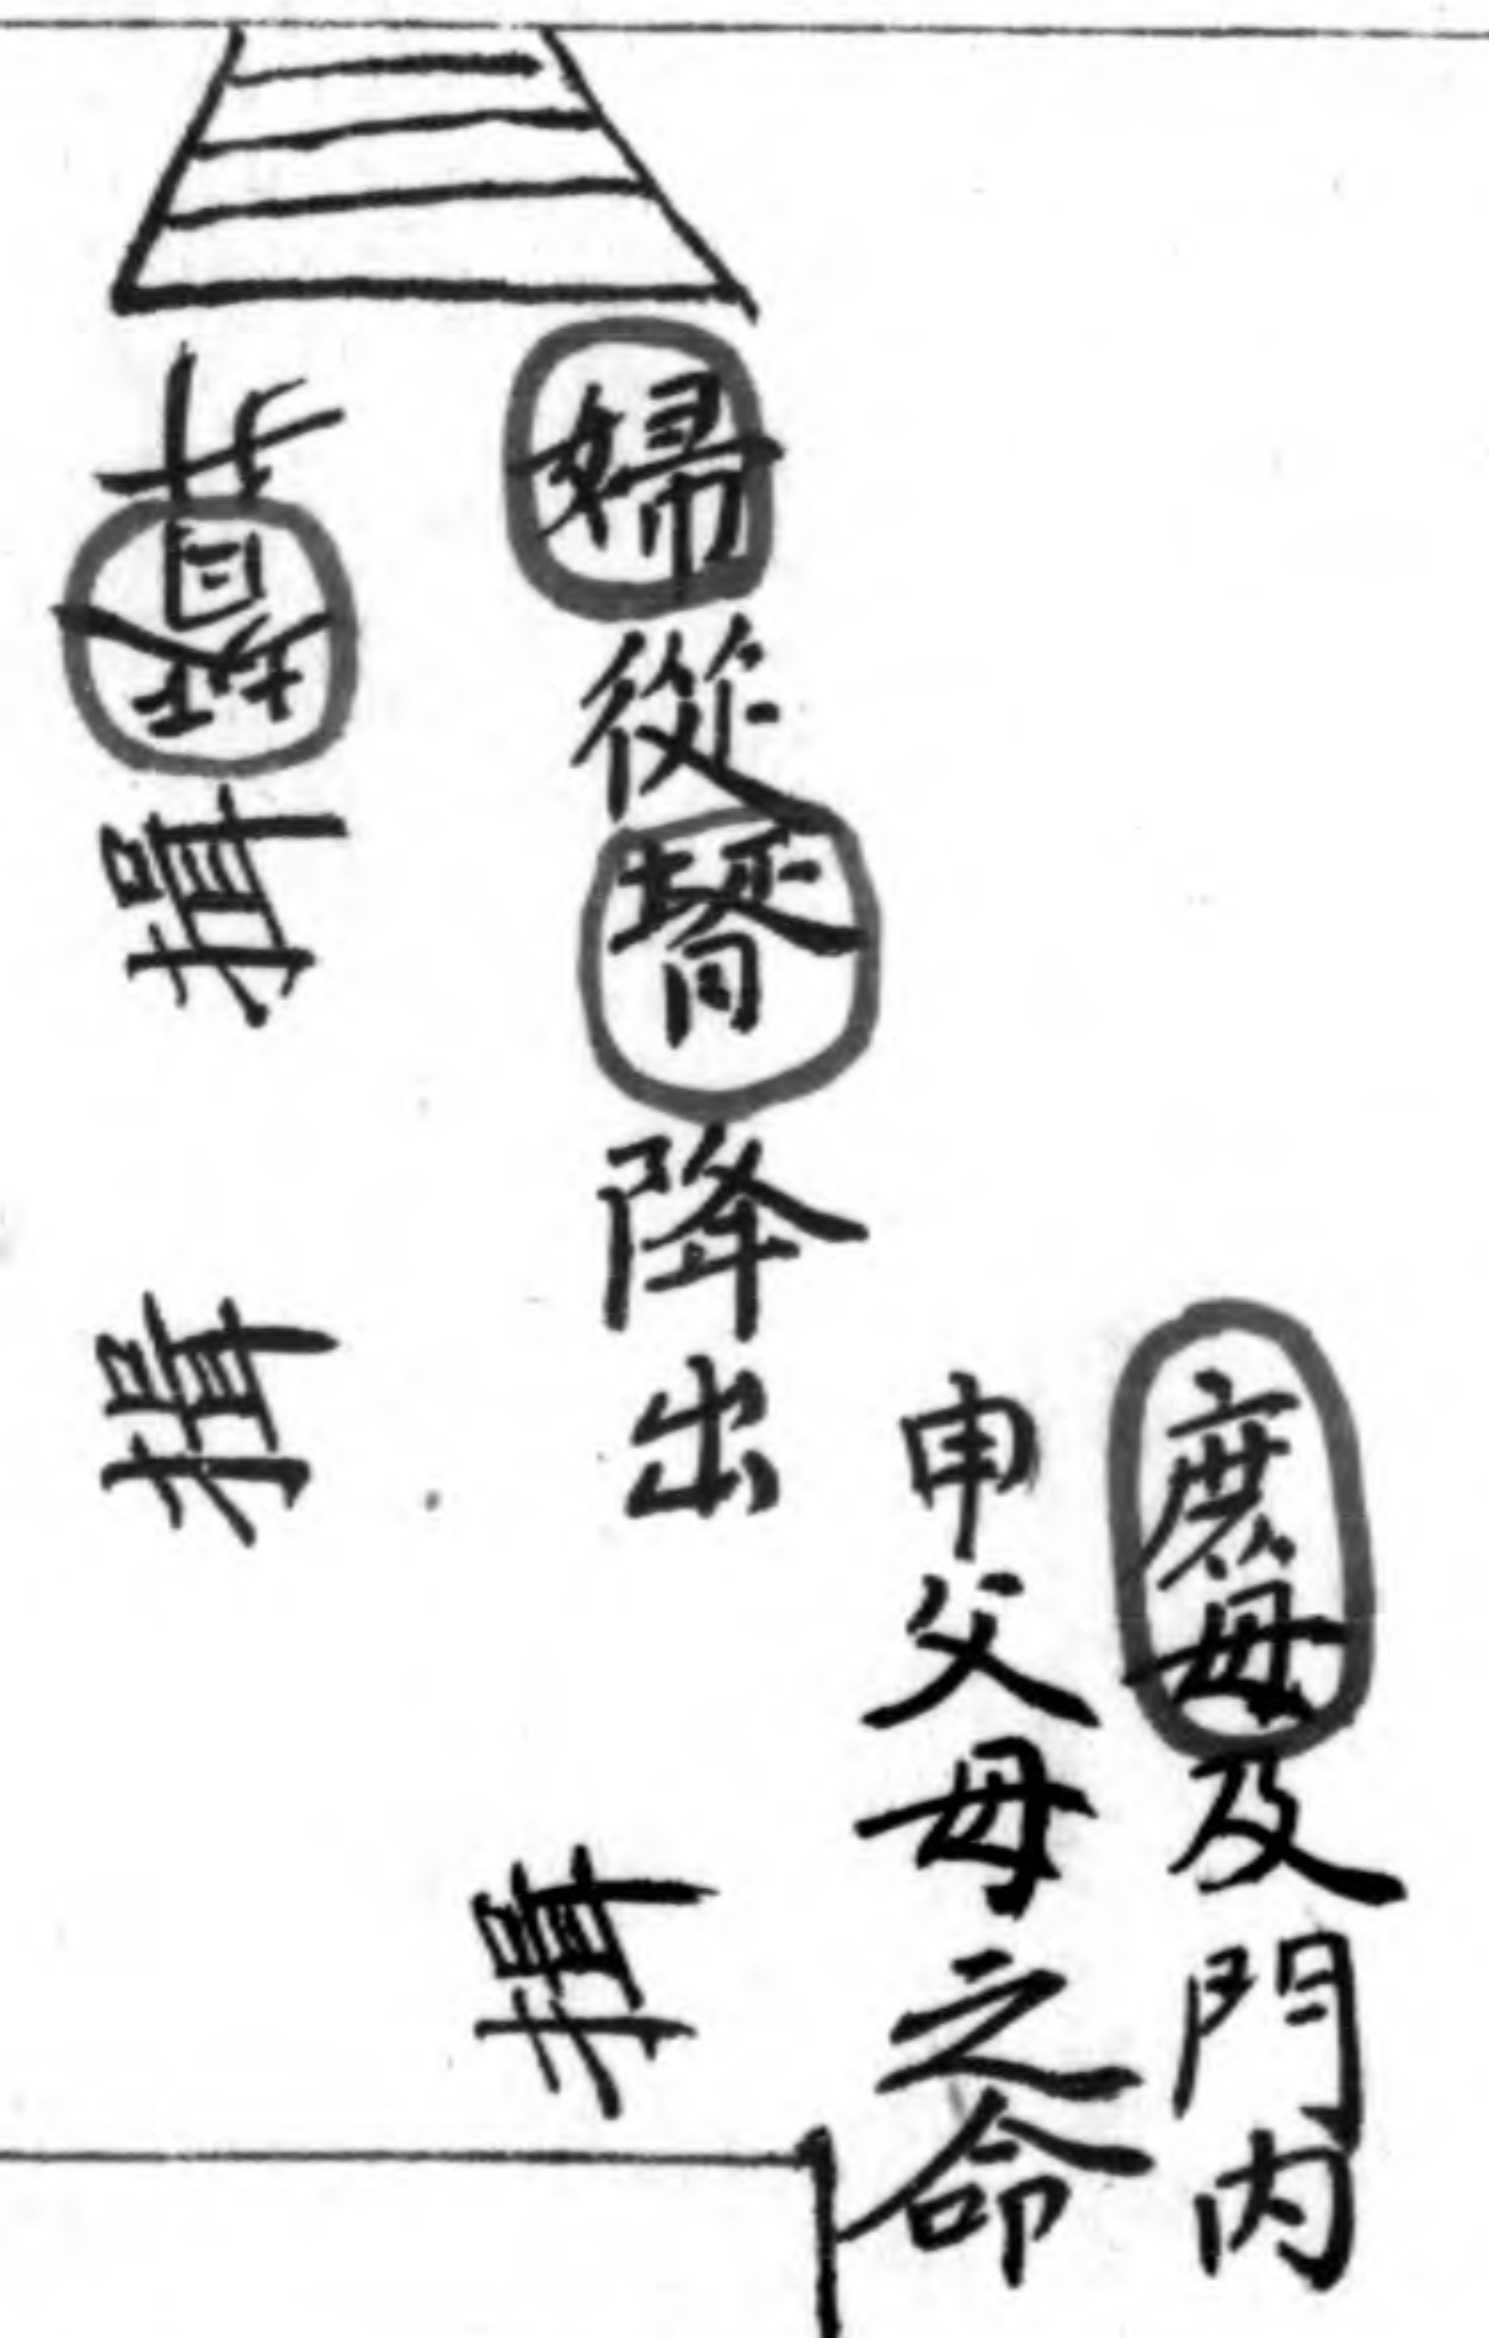 庶母及門內
申父母之命
婦從壻降出
揖
壻升
揖
揖